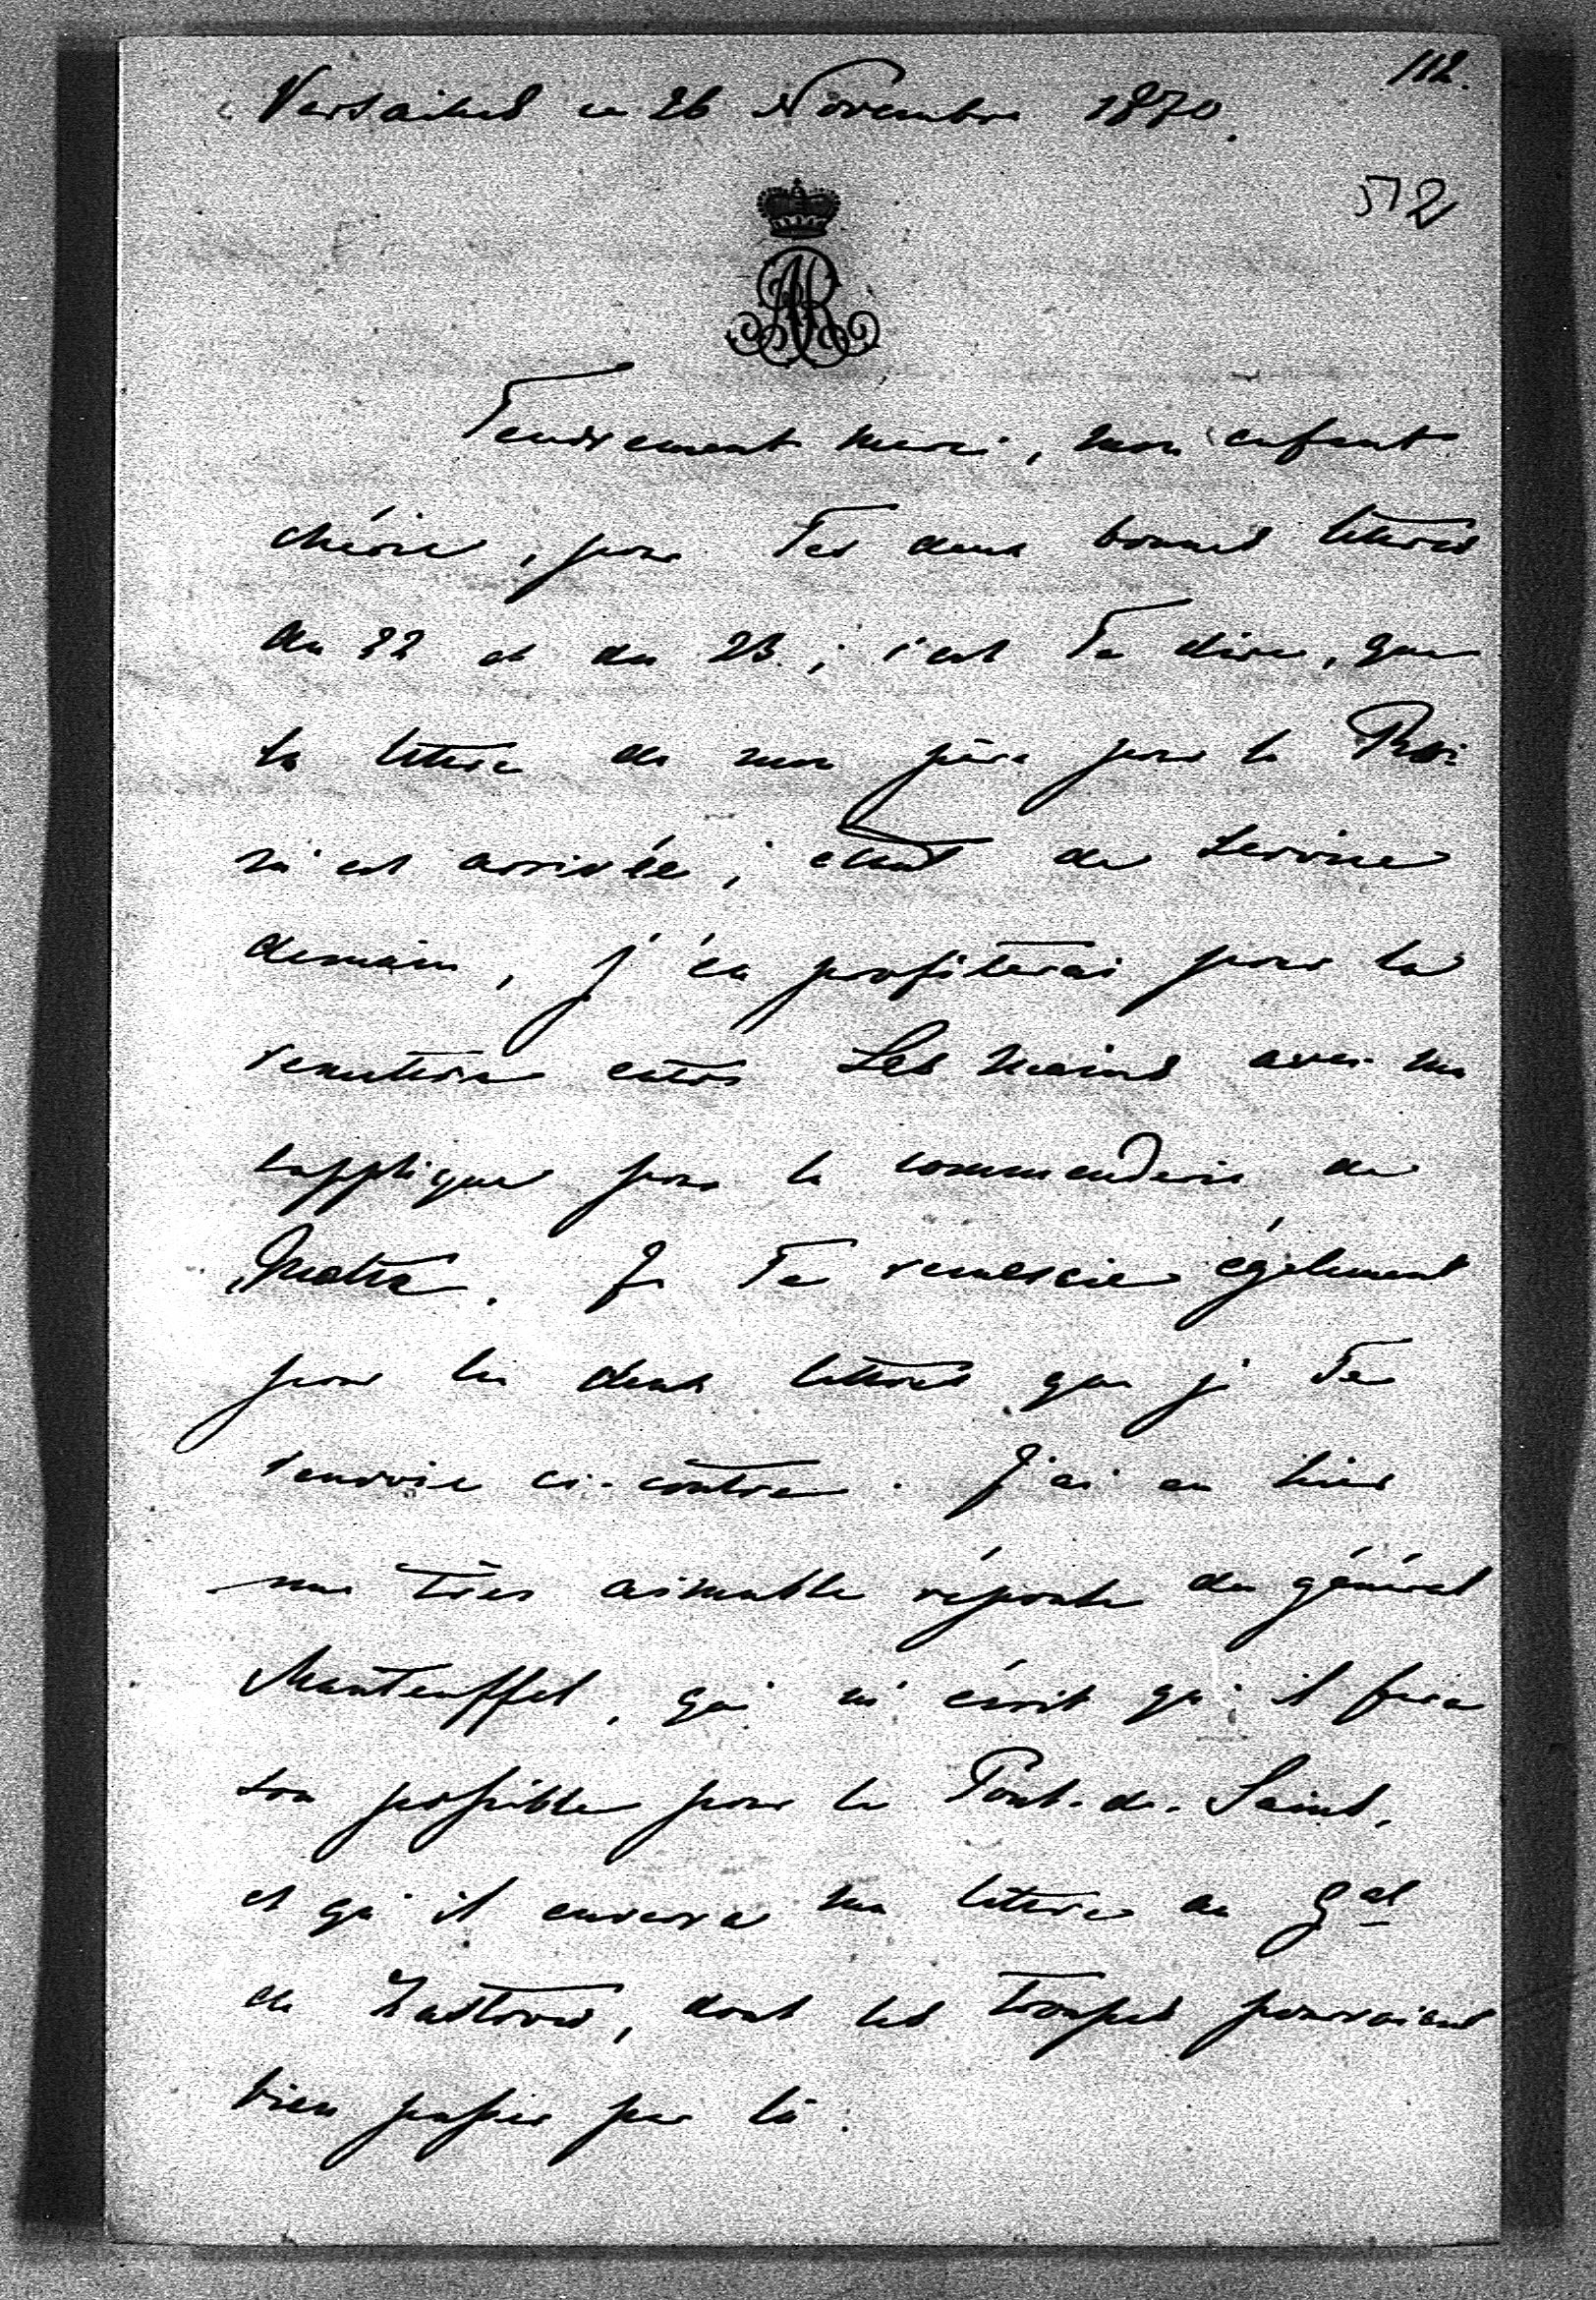 112.
Versailles ce 26 Novembre 1870.
512
Tendrement merci, mon enfant
chérie, pour Tes deux bonnes lettres
du 22 et du 23; c'est Te dire, que
la lettre de mon père pour le Roi
m'est arrivée; étant de service
demain, j'en profiterai pour la
remettre entre Ses mains avec ma
supplique pour la commanderie de
. Je Te remercie également
pour les deux lettres que je Te
renvoie ci-contre. J'ai eu hier
une très aimable réponse du général
Manteuffel, qui m'écrit qu'il fera
son possible pour le Pont-de-Sains,
et qu'il enverra ma lettre au Gal
de Zastrow, dont les troupes pourraient
bien passer par là.